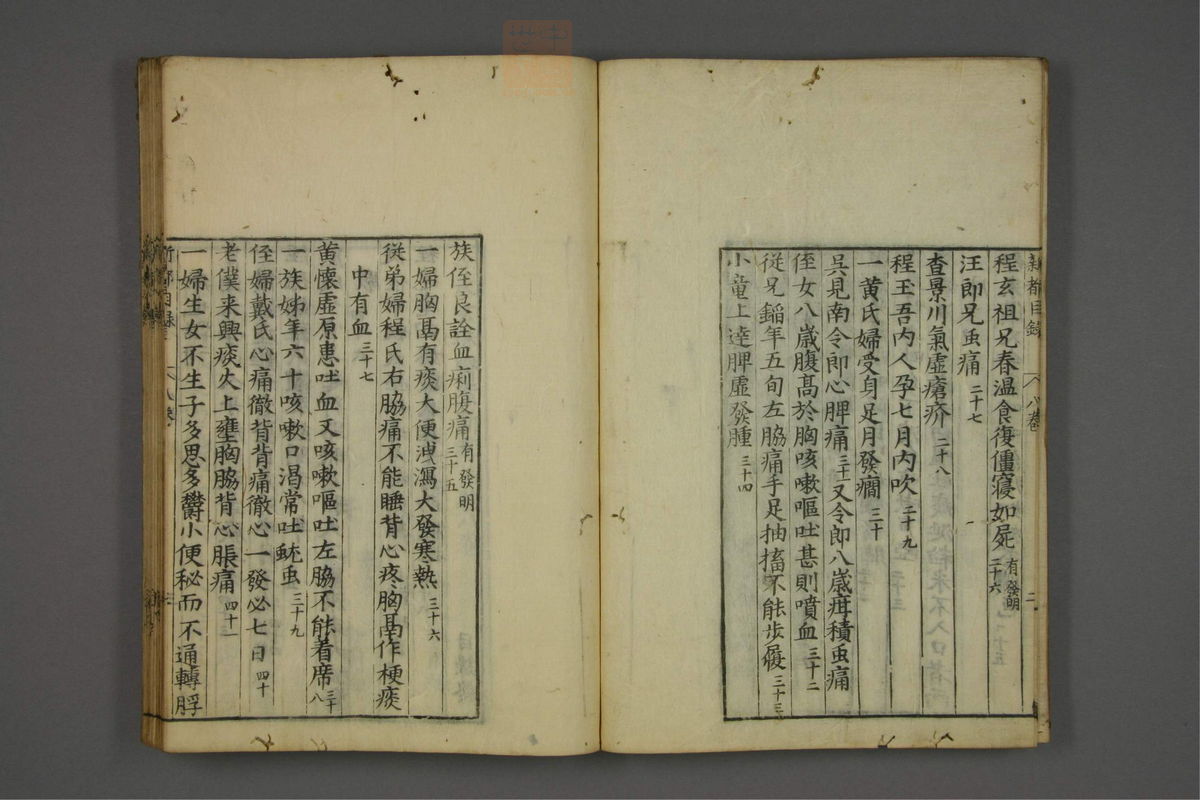 新都目録 八卷 二
程玄祖兄春溫食復僵寢如屍 有發明 二十六
汪郎兄虫痛 二十七
查景川氣虛瘡疥 二十八
程玉吾內人孕七月內吹 二十九
一黃氏婦受身足月發癎 三十
吳見南令郎心脾痛 三十一 又令郎八歲疳積虫痛
侄女八歲腹高於胸咳嗽嘔吐甚則噴血 三十二
從兄鎦年五旬左脇痛手足抽搐不能步履 三十三
小童上達脾虛發腫 三十四
族侄良詮血痢腹痛 有發明 三十五
一婦胸鬲有痰大便洩瀉大發寒熱 三十六
從弟婦程氏右脇痛不能睡背心疼胸鬲作梗痰
中有血 三十七
黃懷虛原患吐血又咳嗽嘔吐左脇不能着席 三十八
一族姊年六十咳嗽口渴常吐蚘虫 三十九
侄婦戴氏心痛徹背背痛徹心一發必七日 四十
老僕来興痰火上壅胸脇背心脹痛 四十一
一婦生女不生子多思多欝小便秘而不通轉脬
新都目録 八卷 三